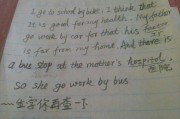 I go to school by bike. I think that
It is good for my health. My father
go work by car for that his
is far from my home. And
a bus stop at the mother's hospital,
so she go work by bus